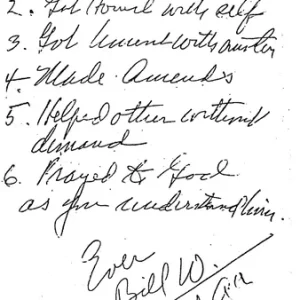 2. Got honest with self
3. Got honest with another
4. Made Amends
5. Helped other without
demand
6. Prayed to God
as you understand him.
Ever
Bill W.